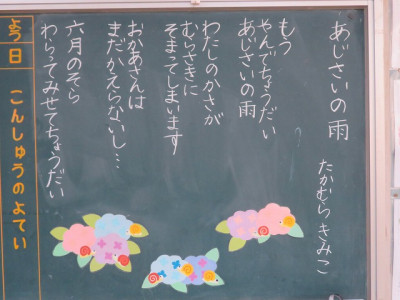 あじさいの雨
たかむら きみこ
もう
やんでちょうだい
あじさいの雨
わたしのかさが
むらさきに
そまってしまいます
おかあさんは
まだかえらないし…
六月のそら
わらってみせてちょうだい
こんしゅうのよてい
よう日